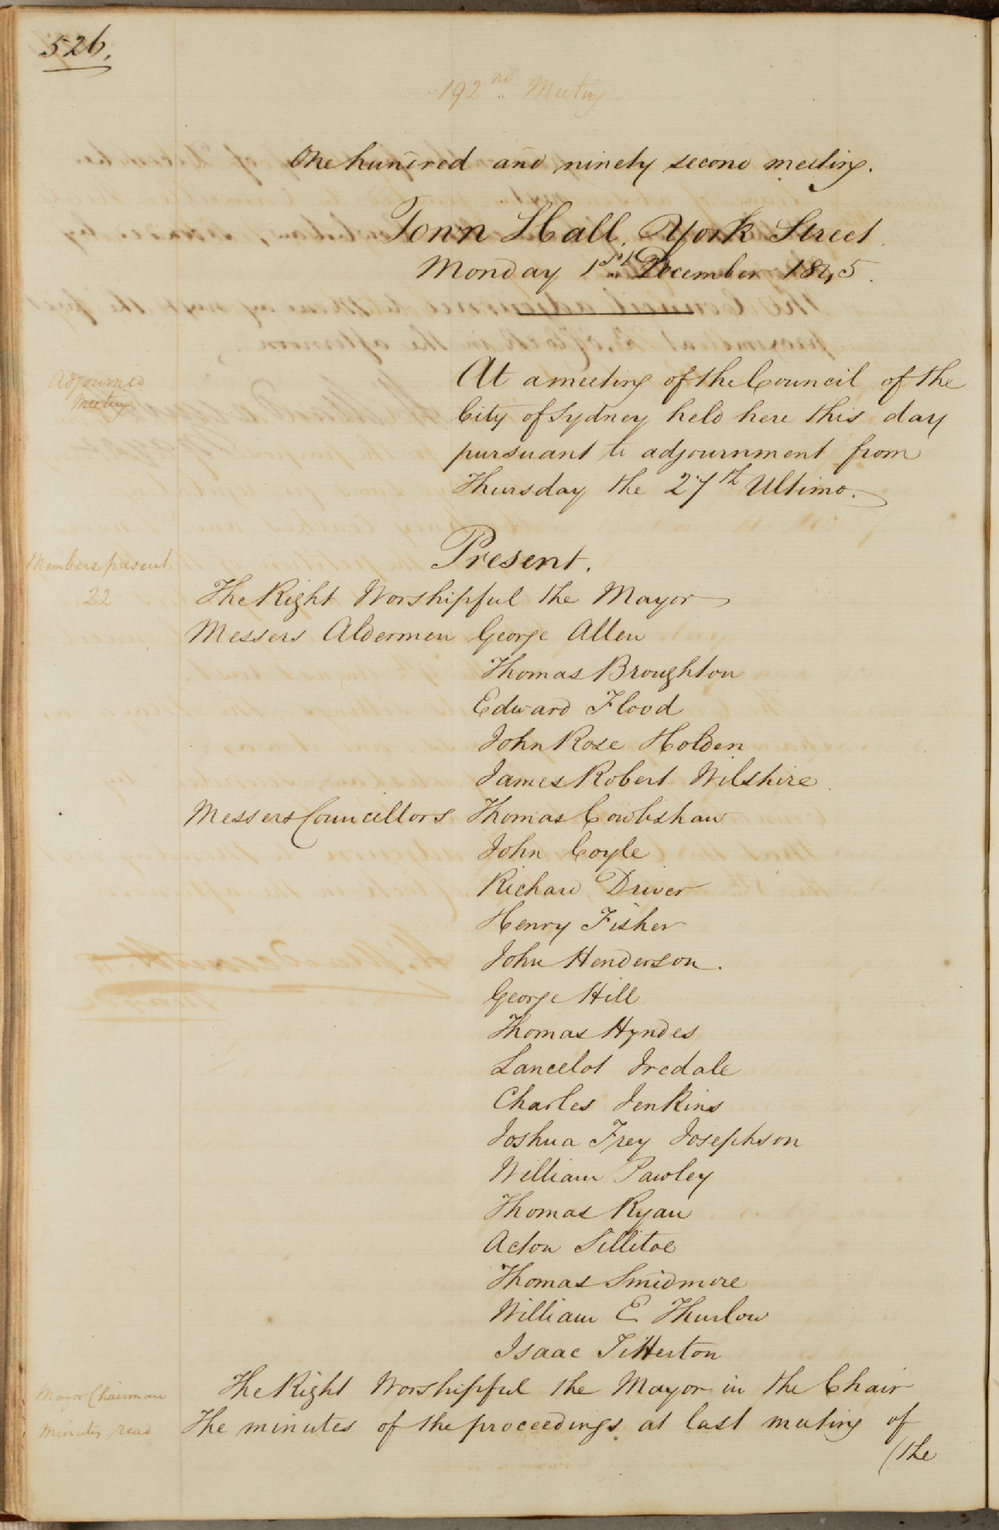 526.
192nd Meeting
One hundred and ninety second meeting.
Town Hall, York Street.
Monday 1st December 1845.
Adjourned
Meeting
At a meeting of the Council of the
City of Sydney held here this day
pursuant to adjournment from
Thursday the 27th Ultimo.
Members present
22
Present.
The Right Worshipful the Mayor
Messers Aldermen George Allen
Thomas Broughton
Edward Flood
John Rose Holden
James Robert Wilshire
Messers Councillors Thomas Cowlishaw
John Coyle
Richard Driver
Henry Fisher
John Henderson.
George Hill
Thomas Hyndes
Lancelot Iredale
Charles Jenkins
Joshua Frey Josephson
William Pawley
Thomas Ryan
Acton Sillitoe
Thomas Smidmore
William E Thurlow
Isaac Titterton
Mayor Chairman
The Right Worshipful the Mayor in the Chair
Minutes read
The minutes of the proceedings at last meeting of
(the